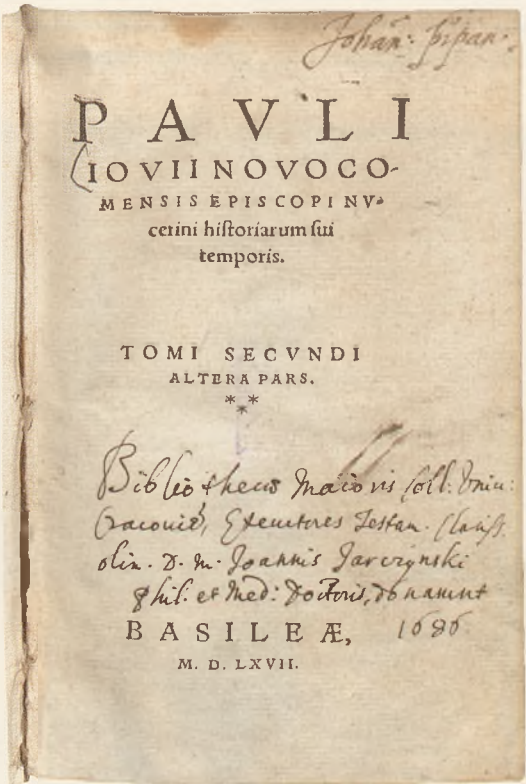 Johan̄: pipan.
PAVLI
IOVII NOVOCO-
MENSIS EPISCOPI NV-
cerini hiſtoriarum ſui
temporis.
TOMI SECVNDI
ALTERA PARS.
* *
*
Bibliothecæ Maioris Coll: Vniu:
Cracouiē, Executores Testan. Clariſſ.
olim. D. M. Joannis Jarczynski
Phil: et Med: Doctoris, donarunt
BASILEÆ, 1686
M. D. LXVII.